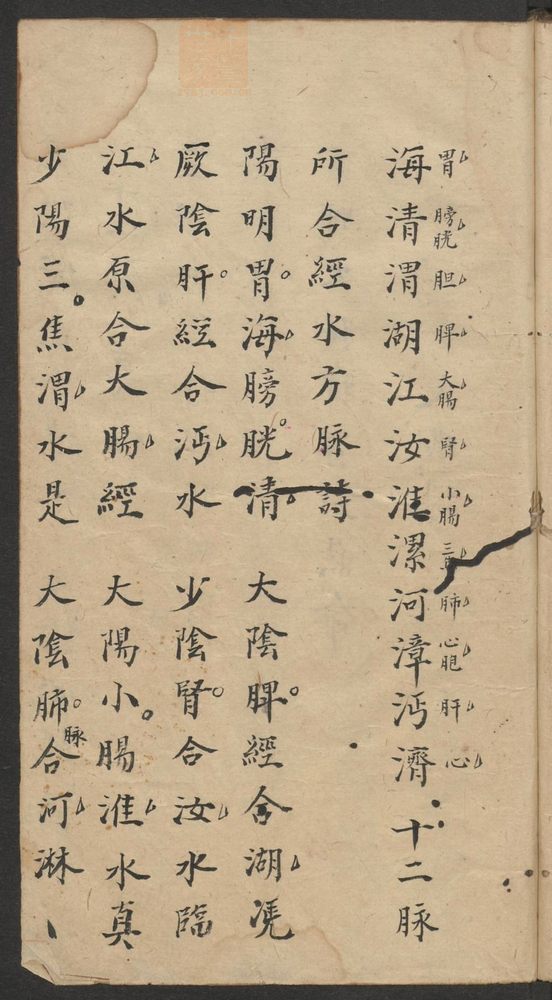 胃 膀胱 胆 脾 大腸 腎 小腸 三焦 肺 心胞 肝 心
海清渭湖江汝淮漯河漳沔濟 十二脉
所合經水方脉詩
陽明胃海膀胱清 大陰脾經合湖凴
厥陰肝經合沔水 少陰腎合汝水臨
江水原合大腸經 大陽小腸淮水真
少陽三焦渭水是 大陰肺脉合河淋、